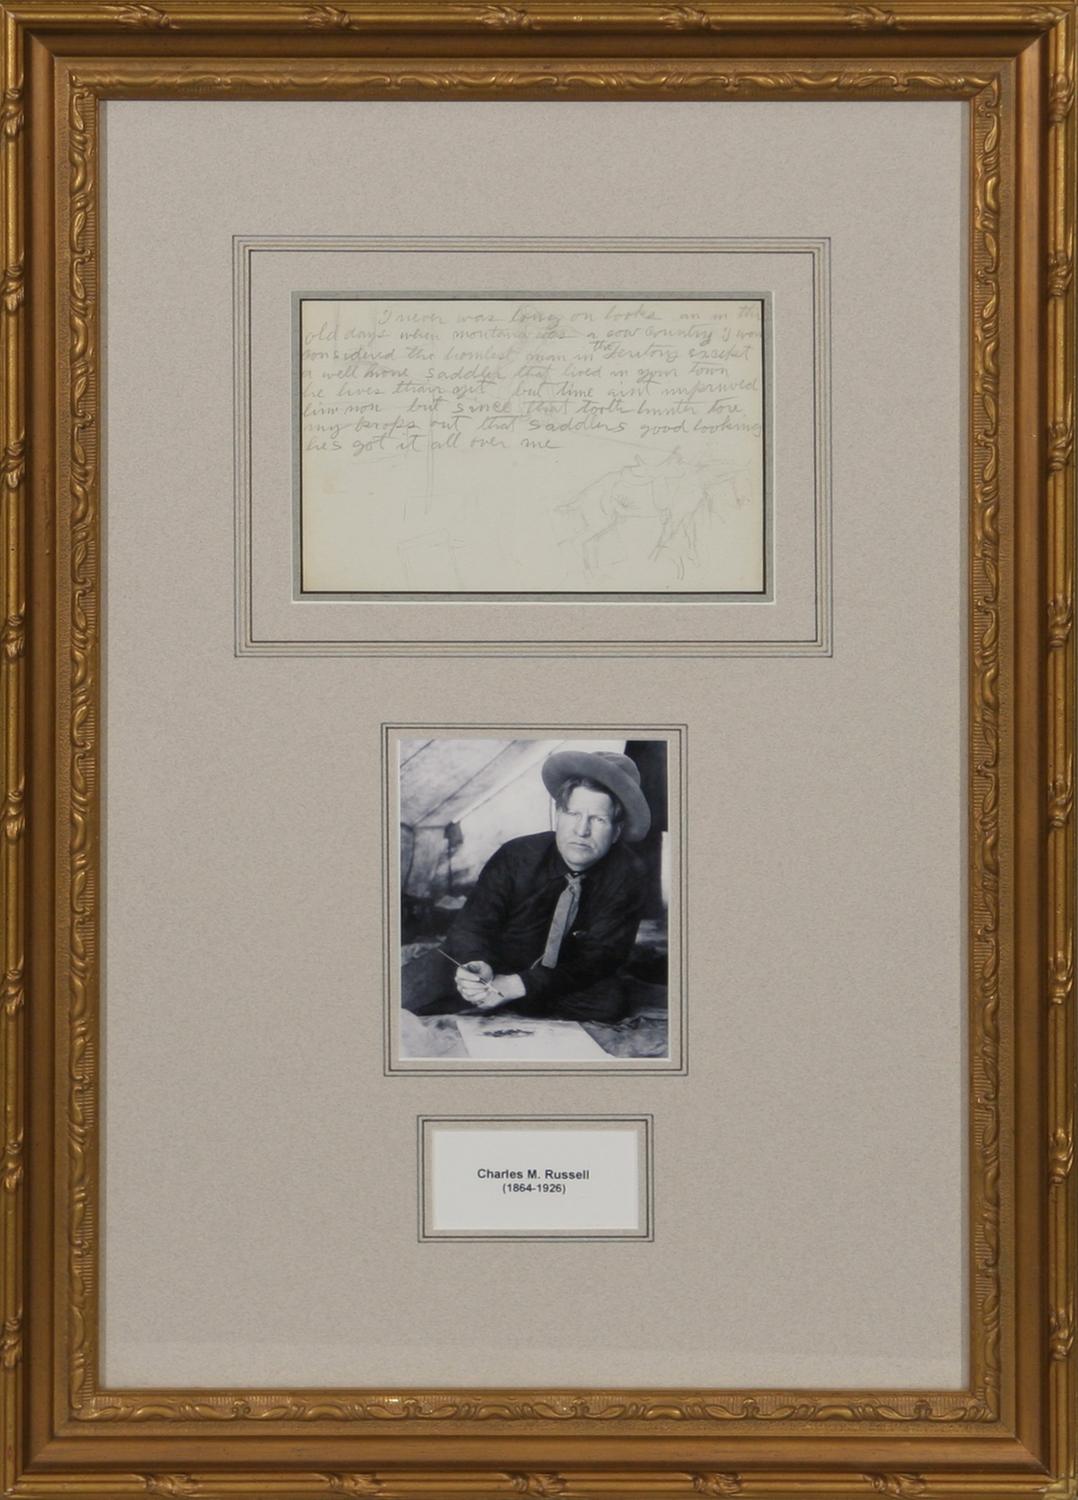 I never was long on looks an in the
old days when montana was a cow country I was
considered the homlest man in the Teritory except
a well none saddler that lived in your town
he lives thair yet but time aint unpruved
him non but since that tooth hunter tore
my props out that saddlers good looking
hes got it all over me
Charles M. Russell
(1864-1926)